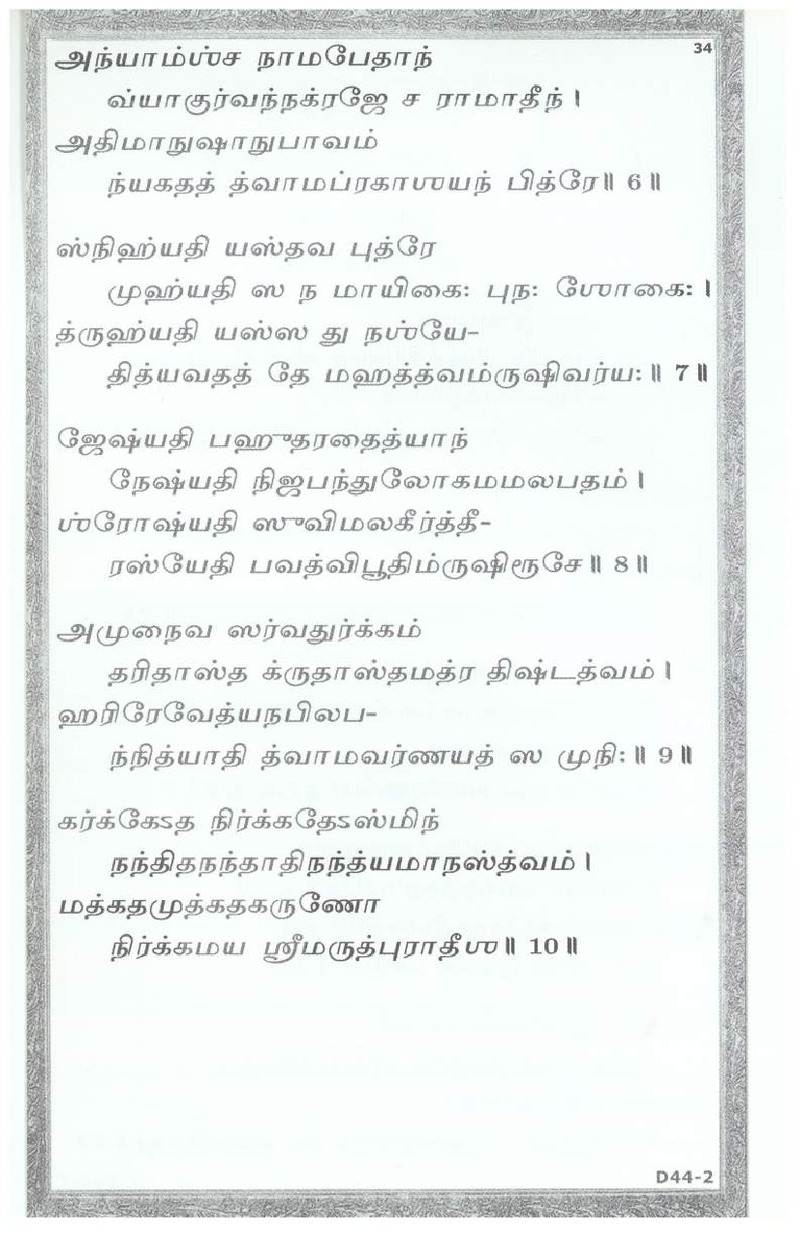 34
அந்யாம்ஶ்ச நாமபேதாந்
வ்யாகுர்வந்நக்ரஜே ச ராமாதீந் ।
அதிமாநுஷாநுபாவம்
ந்யகதத் த்வாமப்ரகாஶயந் பித்ரே॥ 6 ॥
ஸ்நிஹ்யதி யஸ்தவ புத்ரே
முஹ்யதி ஸ ந மாயிகை: புந: ஶோகை: ।
த்ருஹ்யதி யஸ்ஸ து நஶ்யே-
தித்யவதத் தே மஹத்த்வம்ருஷிவர்ய:॥ 7 ॥
ஜேஷ்யதி பஹுதரதைத்யாந்
நேஷ்யதி நிஜபந்துலோகமமலபதம் ।
ஶ்ரோஷ்யதி ஸுவிமலகீர்த்தீ-
ரஸ்யேதி பவத்விபூதிம்ருஷிரூசே॥ 8 ॥
அமுநைவ ஸர்வதுர்க்கம்
தரிதாஸ்த க்ருதாஸ்தமத்ர திஷ்டத்வம் ।
ஹரிரேவேத்யநபிலப-
ந்நித்யாதி த்வாமவர்ணயத் ஸ முநி:॥ 9 ॥
கர்க்கே஽த நிர்க்கதே஽ஸ்மிந்
நந்திதநந்தாதிநந்த்யமாநஸ்த்வம் ।
மத்கதமுத்கதகருணோ
நிர்க்கமய ஸ்ரீமருத்புராதீஶ॥ 10 ॥
D44-2